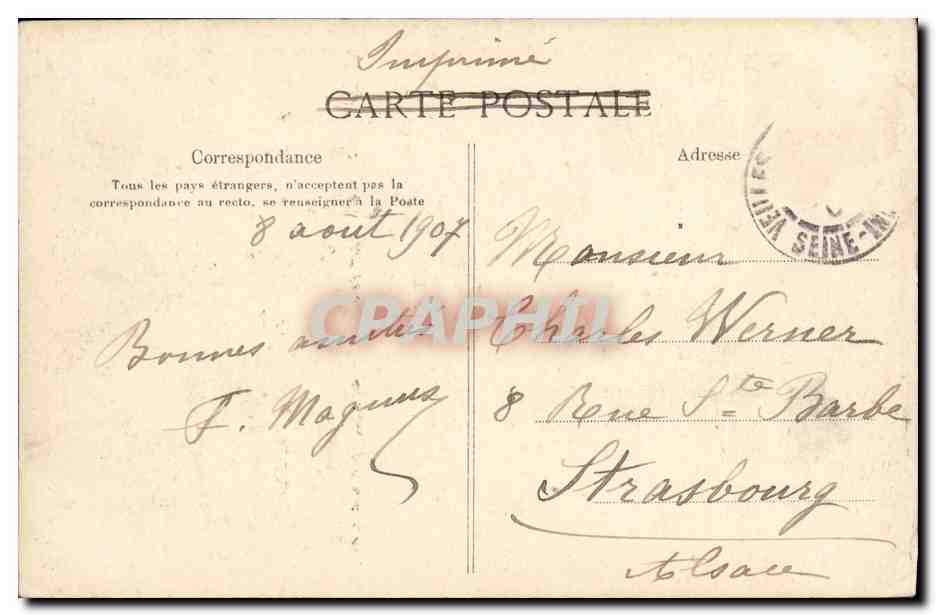 Imprimé
CARTE POSTALE
Correspondance
Tous les pays étrangers, n'acceptent pas la
correspondance au recto, se renseigner à la Poste
8 août 1907
Bonnes amitiés
F. Magnus
Adresse
VEULES SEINE-IN
Monsieur
Charles Werner
8 Rue Ste Barbe
Strasbourg
Alsace
CPAPHIL